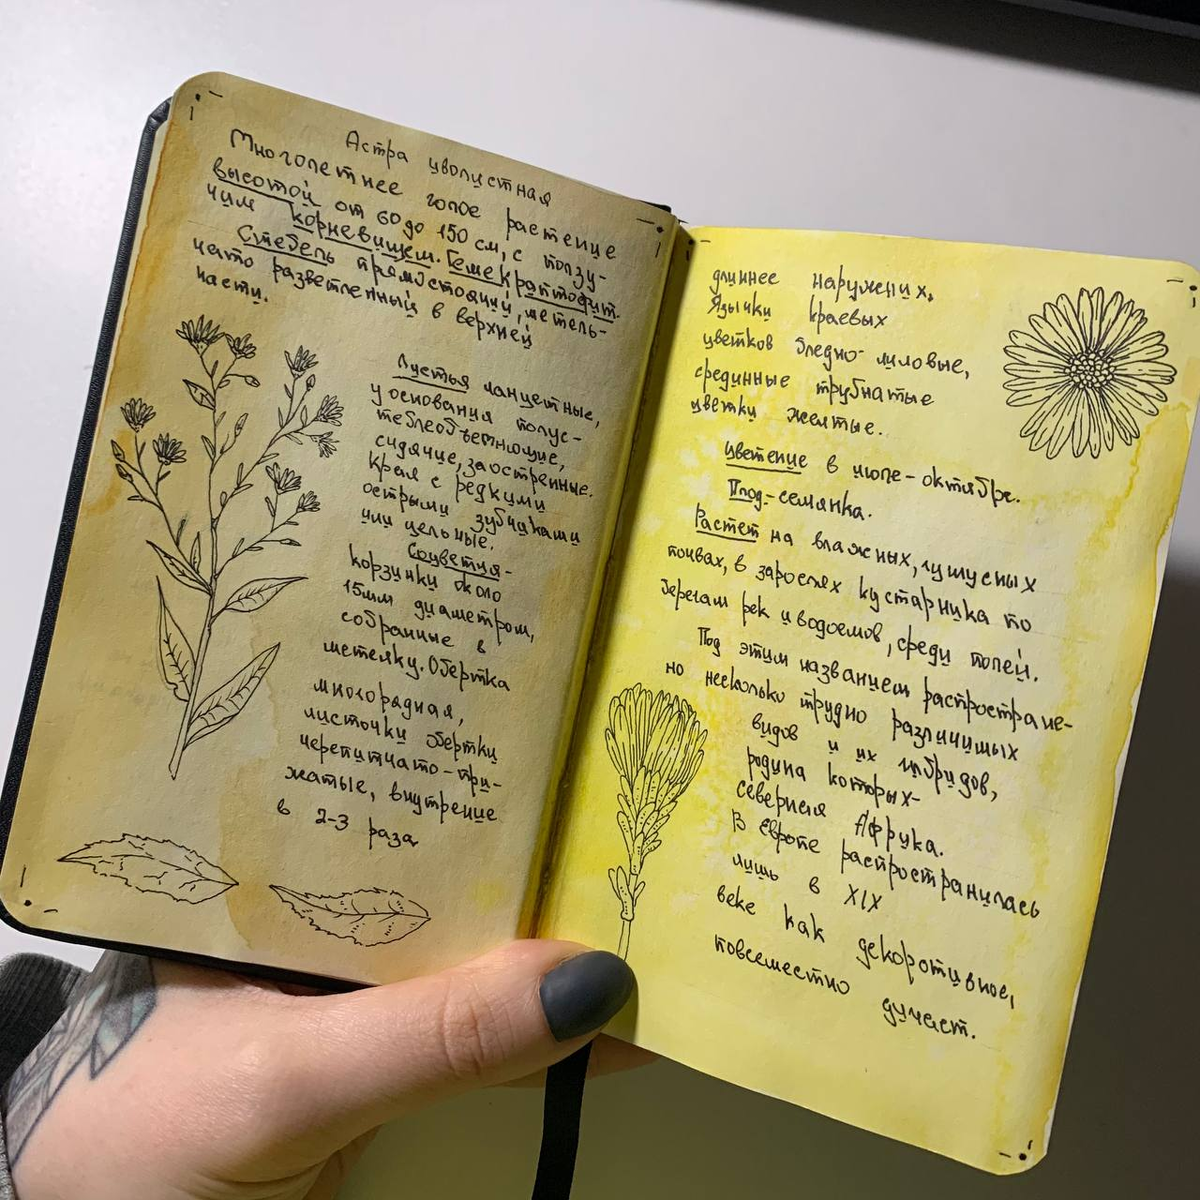 Астра иволистная
Многолетнее голое растение
высотой от 60 до 150 см, с ползу-
чим корневищем. Гемекраптофит.
Стебель прямостоячий, метель-
чато разветленный в верхней
части.
Листья ланцетные,
у основания полус-
теблеобъемлющие,
сидячие, заостренные.
Края с редкими
острыми зубчиками
или цельные.
Соцветия-
корзинки около
15мм диаметром,
собранные в
метелку. Обертка
многорядная,
листочки обертки
черепитчато-при-
жатые, внутрение
в 2-3 раза
длиннее наружних.
Язычки краевых
цветков бледно-лиловые,
срединные трубчатые
цветки желтые.
Цветение в июле-октябре.
Плод-семянка.
Растет на влажных,
почвах, в зарослях кустарника по
берегам рек и водоемов, среди полей.
Под этим названием распростране-
но несколько трудно различимых
видов и их гибридов,
родина которых-
северная Африка.
В Европе распространилась
лишь в XIX
веке как декоротивное,
повсеместно дичает.